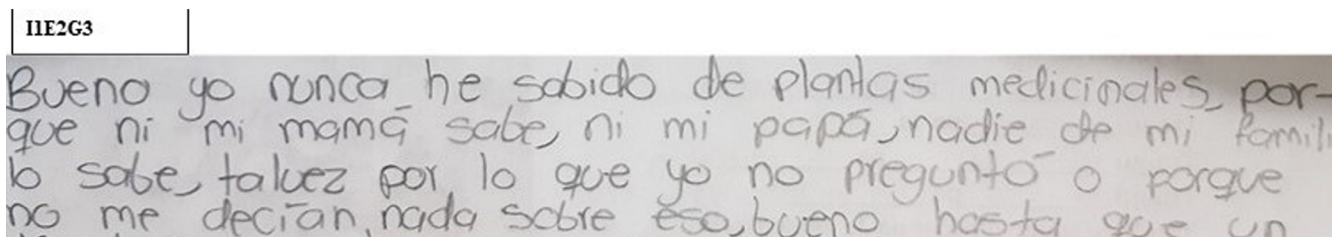 I1E2G3
Bueno yo nunca he sabido de plantas medicinales, por-
que ni mi mamá sabe, ni mi papá, nadie de mi famili
lo sabe, talvez por lo que yo no preguntó o porque
no me decían, nada sobre eso, bueno hasta que un